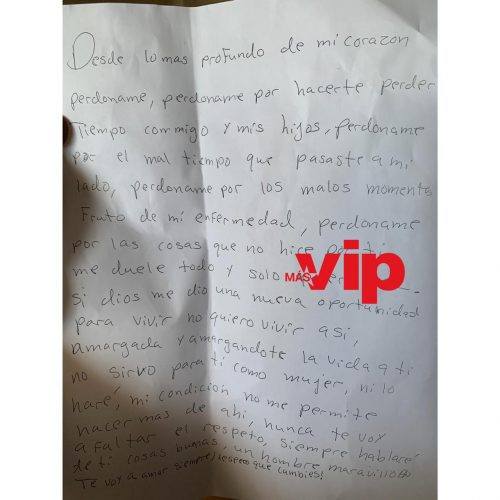 Desde lo mas profundo de mi corazon
perdoname, perdoname por hacerte perder
Tiempo conmigo y mis hijos, perdoname
por el mal tiempo que pasaste a mi
lado, perdoname por los malos momento
Fruto de mi enfermedad, perdoname
por las cosas que no hice por ti
me duele todo y solo
si dios me dio una nueva oportunidad
para vivir no quiero vivir asi,
amargada y amargandote la vida a ti
no sirvo para ti como mujer, ni lo
haré, mi condición no me permite
hacer mas de ahi, nunca te voy
a faltar el respeto, siempre hablaré
de ti cosas buenas, un hombre maravilloso
Te voy a amar siempre, deseo que cambies!
MÁS vip